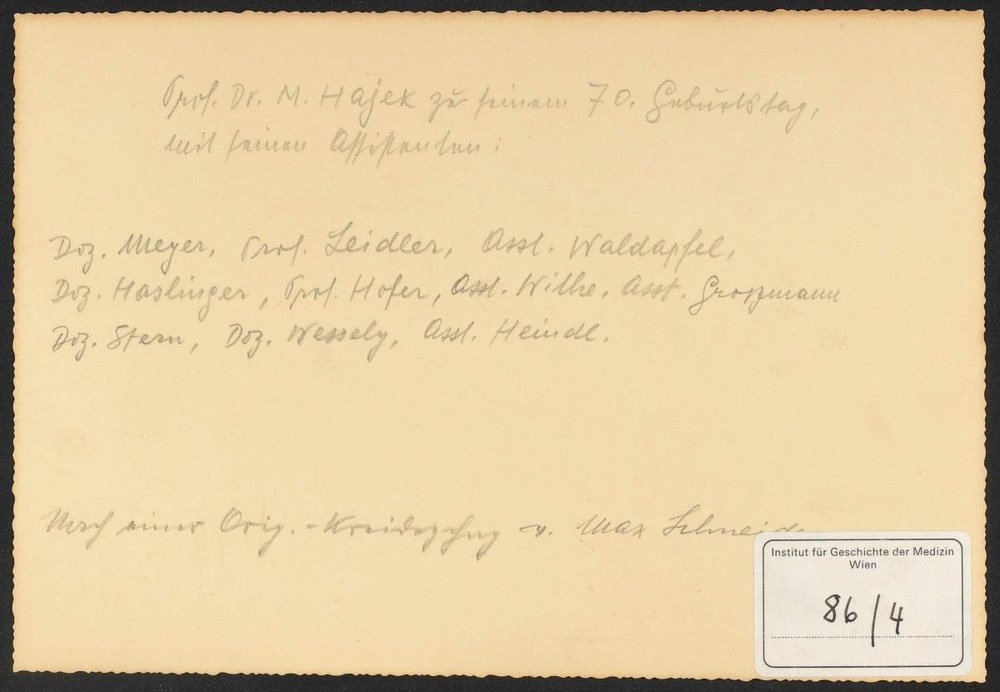 Prof. Dr. M. Hajek zu seinem 70. Geburtstag,
mit seinen Assistenten:
Doz. Meyer, Prof. Leidler, Asst. Waldapfel,
Doz. Haslinger, Prof. Hofer, Asst. Wilhe. Asst. Großmann
Doz. Stern, Doz. Wessely, Asst. Heindl.
Nach einer Orig.-Kreidezchng v. Max
Institut für Geschichte der Medizin
Wien
86/4